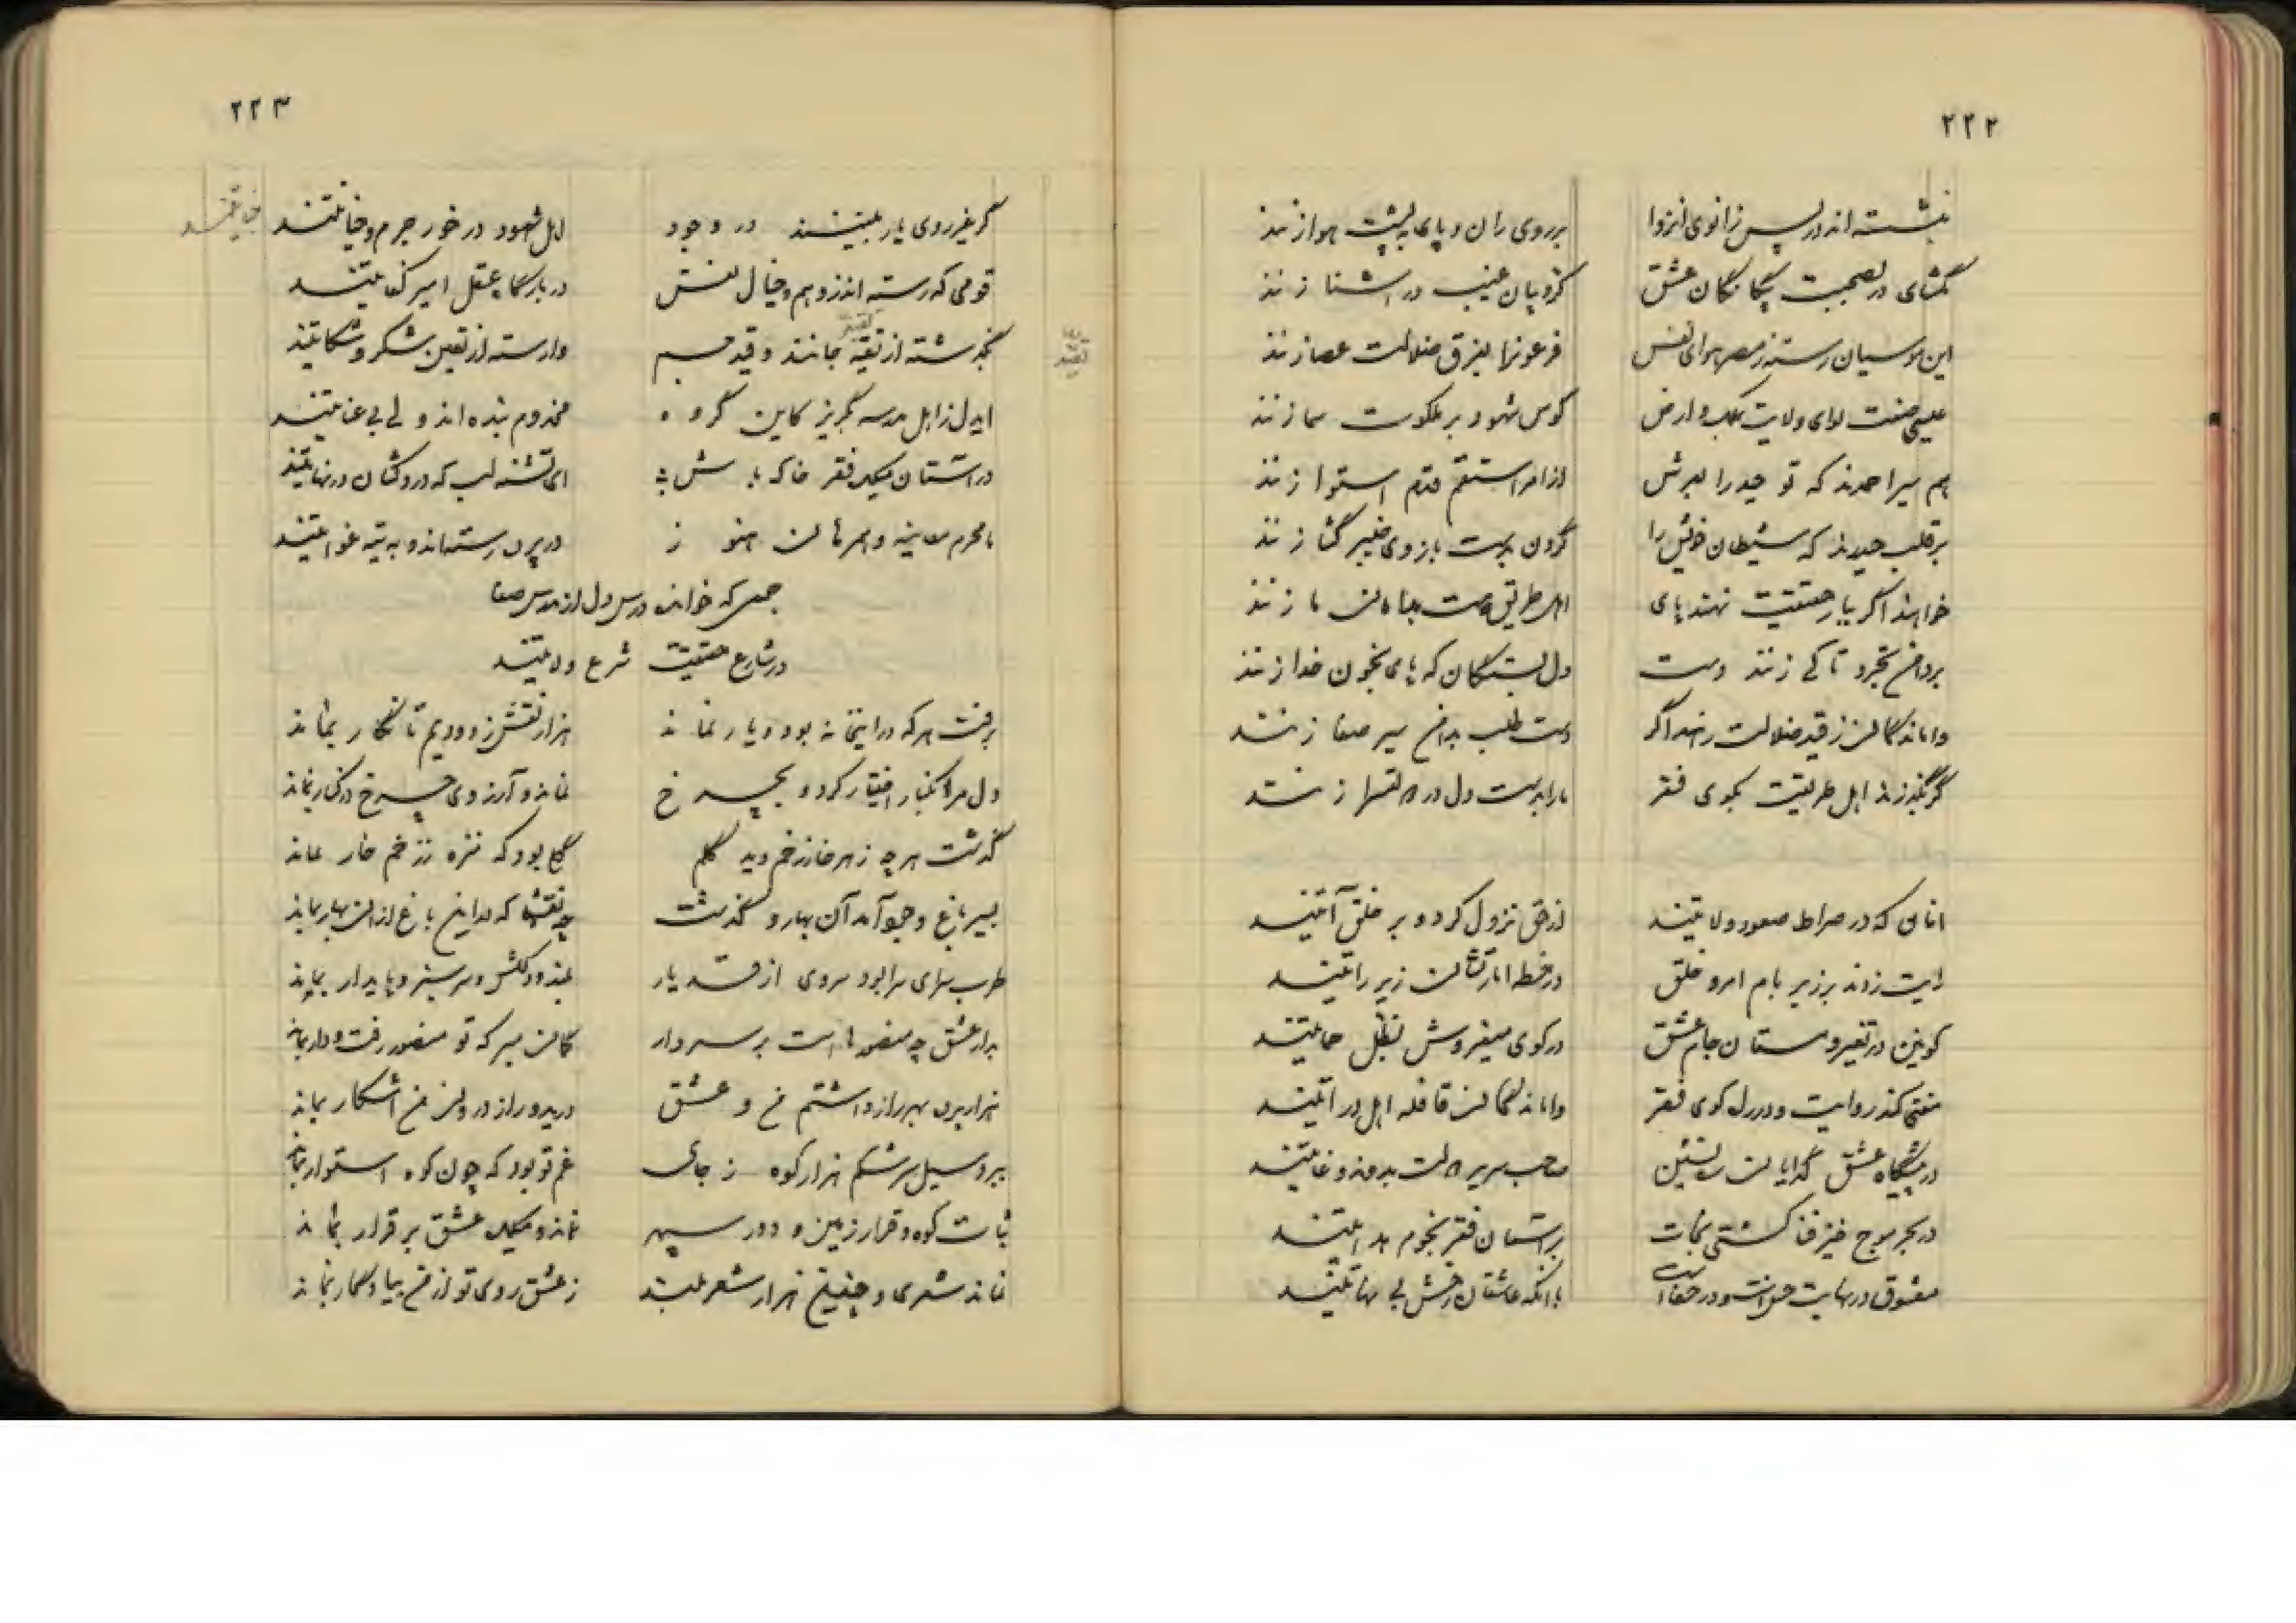 ۲۲۲
بنشسته اند در پس زانوی انزوا بر روی ران و پای به پشت هوا زنند
بگشای در بصحبت یکتا عشق کروبیان غیب در آشنا زنند
این موسیان رسته ز مصر هوای نفس فرعونرا بفرق ضلالت عصا زنند
عیسی صفت لوای ولایت بملک و ارض کوس شهود بر ملکوت سما زنند
هم سیر احمدند که تو حید را بعرش از امر استقم قدم استوا زنند
بر قلب حیدرند که شیطان خویش را گردن بدست بازوی خیبر گشا زنند
خواهند اگر بیار حقیقت نهند پای اهل طریق دست بدامان ما زنند
بر دامن تجرد تا کی زنند دست دل بستگان که پای بخون خدا زنند
واماندگان ز قید ضلالت رهند اگر دست طلب بدامن سیر صفا زنند
گر بگذرند اهل طریقت بکوی فقر ما را بدست دل در دولتسرا زنند
آنان که در صراط صعود ولایتند از حق نزول کرده و بر خلق آیتند
رایت زدند بر زبر بام امر و خلق در خطه زیر رایتند
کونین در تغیر و مستان جام عشق در کوی میفروش بظل حمایتند
مفتی کند روایت و در دل کوی فقر واماندگان قافله اهل درایتند
در پیشگاه عشق گدایان ره نشین صاحب سریر دولت بیحد و غایتند
در بحر موج خیز فنا کشتی نجات بر آسمان فقر نجوم هدایتند
معشوق در نهایت حسن است و در صفات با آنکه عاشقان رخش بی نهایتند
۲۲۳
گر غیر روی یار ببینند در وجود اهل شهود در خور جرم و جنایتند
جنایتند
قومی که رسته اند ز وهم و خیال نفس در بارگاه عقل امیر کفایتند
بگذشته از تقیه جانند و قید جسم وارسته از تعین شکر و شکایتند
تقید
ایدل ز اهل مدرسه بگریز کاین گروه مخدوم بنده اند و لی بی عنایتند
در آستان میکده فقر خاک باش ای تشنه لب که دردکشان در نهایتند
نامحرم مدینه و هنوز در پرده رسته اند و به تیه غوایتند
جمعی که خوانده درس دل از مدرس صفا
در شارع حقیقت شرع ولایتند
برفت هر که در اینخانه بود و یار نماند هزار نقش زدودیم تا نگار بماند
دل مرا بکنار اختیار کرد و بچرخ نماند و آرزوی چرخ در کنار نماند
گذشت هر چه ز هر خار زخم دید گلم گلی بود که منزه ز زخم خار نماند
بسیر باغ وجود آمد آن بهار و گذشت چه نقشها که در این باغ از آن بهار بماند
طرب سرای مرا بود سروی از قد یار بلند و دلکش و سرسبز و پایدار بماند
بدار عشق چه منصورها است بر سر دار گمان مبر که تو منصور رفت و دار بماند
هزار پرده بهر راز داشتم من و عشق درید و راز درون من آشکار بماند
ببرد سیل سرشکم هزار کوه ز جای غم تو بود که چون کوه استوار بماند
ثبات کوه و قرار زمین و دور سپهر نماند و میکده عشق برقرار بماند
نماند شعری و چنین هزار شعر بلند ز عشق روی تو از من بیادگار بماند